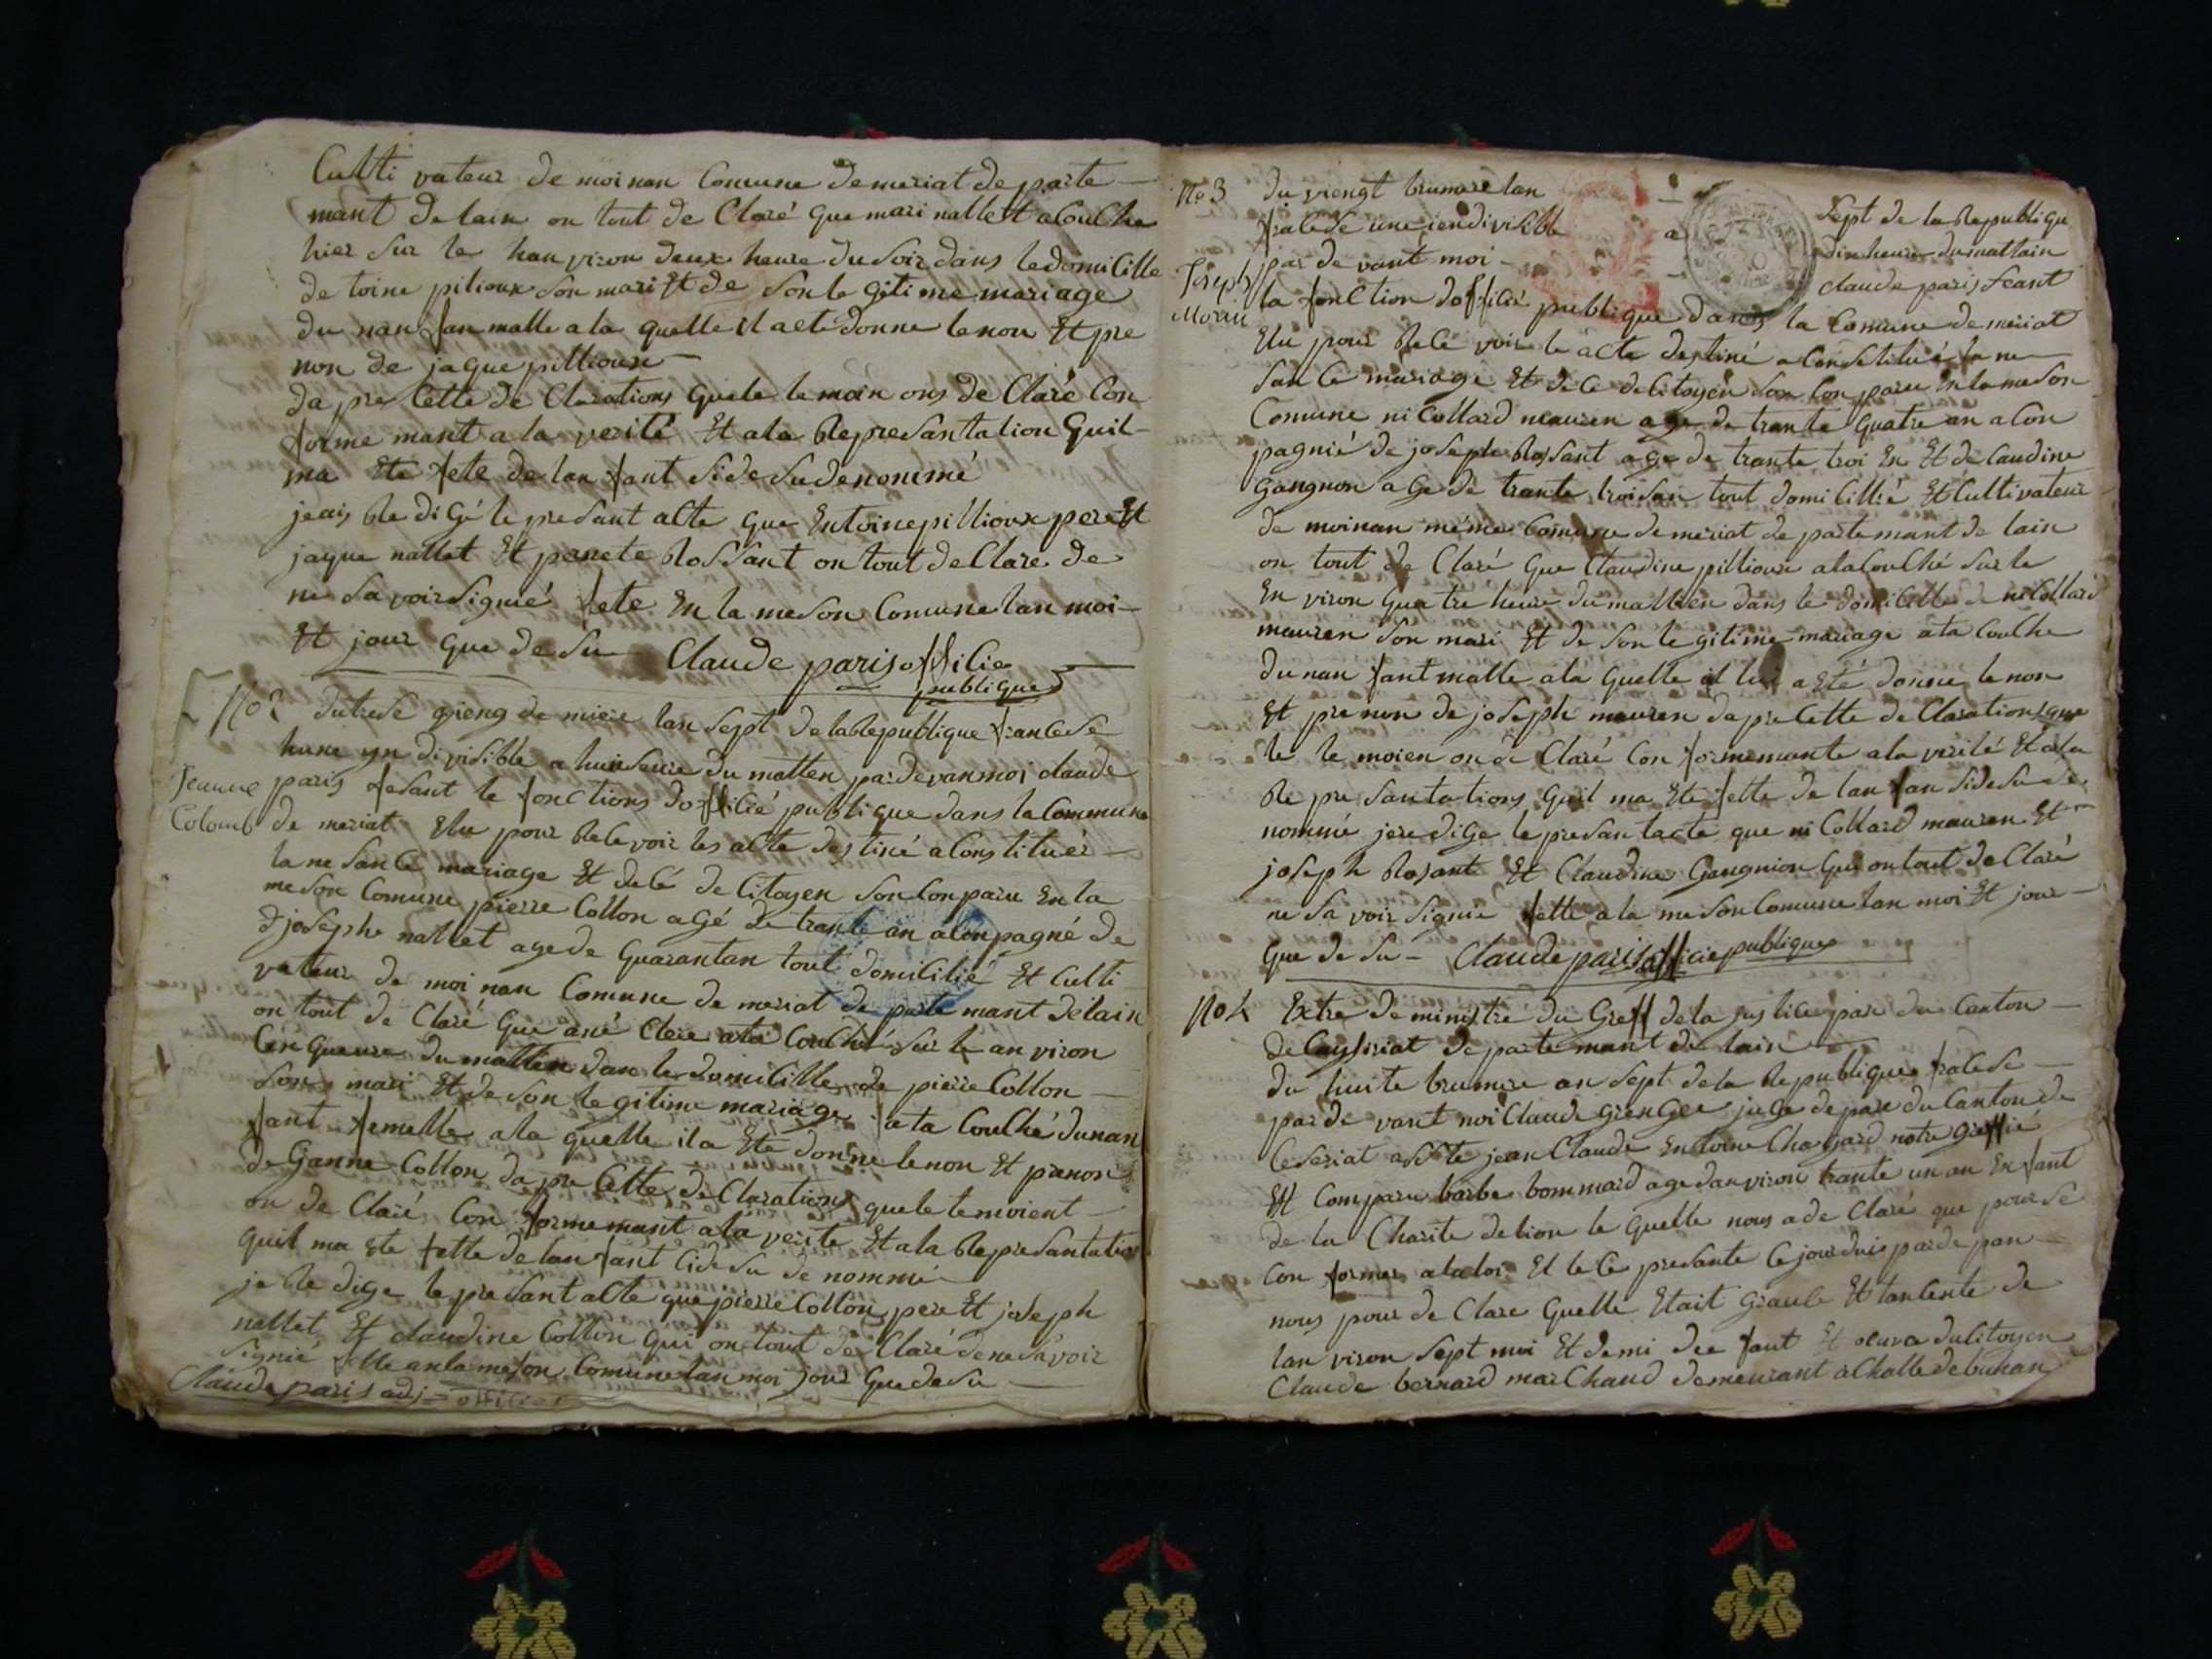 Culti vateur de moinan Comune demeriat de parte
mant de lain on tout de Claré que mari nallet a Couche
hier sur le han viron deux heure du soir dans le domicille
de toine pilioux son mari Et de son le gitime mariage
du nan fan malle a la quelle il a ete donne le non Et pre
non de jaque pillioux
da pre Cette de Clarations que le le moin ons de Claré Con
forme mant a la verité Et a la Represantation quil
ma Ete fete de lan fant side su denommé
jeais Re di Gé le presant alte que Entoine pillioux pere Et
jaque nallet Et panete Rossant on tout de Clare de
ne sa voir signié fete En la meson Comune lan moi
Et jour que de su Claude paris offilie
publique
No 2 du trese du mere lan sept de la Republique francese
hune yn divisible a huis eure du matten par devan moi claude
Jeanne paris fesant le fonctions dofficié publique dans la Commune
Colomb de meriat Elu pour Relevoir les alte des tiné a Constituér
la ne sance mariage Et de Cé de Citoyen son Conparu En la
meson Comune pierre Collon agé de trante an a Conpagné de
djoseph nallet age de quarantan tout domicilié Et Culti
vateur de moi nan Comune de meriat de parte mant de lain
on tout de Claré que ané Clere a ta Couché sur le an viron
Cin queure du matten dan le domicille de pierre Collon
son mari Et de son le gitime mariage a ta Couché du nan
fant femelle a la quelle il a Ete donne le non Et prenon
de Ganne Collon da pre Cette de Clarations que le temoient
on de Claré Con forme mant a la verite Et a la Represantation
quil ma Ete fette de lan fant Cide su de nommé
je Re dige le presant alte que pierre Collon pere Et joseph
nallet Et claudine Collon qui on tout de Claré de ne savoir
signié fette an la meson Comune lan moi jour que de su
Claude paris adj officier
No 3 du viengt brumere lan sept de la Republique
fralese une iendivisible a dix heure du mattain
par de vant moi claude paris feant
Joseph la fonction dofficié publique dans la Comune de meriat
Morin
Elu pour Rele voir le acte destiné a Constitué la ne
san ce mariage Et de Ce de Citoyen son Con paru En la meson
Comune ni Collard mauren age de trante quatre an a Con
pagnié de joseph Rossant age de trante troi En Et de Caudine
gangnon age de trante troi san tout domicillié Et Cultivateur
de moinan méme Comune de meriat de parte mant de lain
on tout de Claré que Claudine pillioux a ta Couché sur le
En viron quatre heure du matten dans le domicille de niCollard
mauren son mari Et de son le gitime mariage a ta Couche
du nan fant malle a la quelle il lui a Eté donne le non
Et pre non de joseph mauren da pre Cette de Clarations que
le le moien on de Claré Con formemante a la verité Et a la
Re pre santations quil ma Ete fette de lan fan side su de
nommé je re dige le presan tacte que ni Collard mauren Et
joseph Rosant Et Claudine Gangnion qui on tout de Claré
ne sa voir signié fette a la meson Comune lan moi Et jour
que de su Claude paris officie publique
No 4 Extre de ministre du Greff de la justice pare du Canton
de Ceyseriat de parte mant de lain
du huite brumere an sept de la Republique fralese
par de vant noi Claude Grenger juge de pare du Canton de
Ceseriat asiste jean Claude Entoine Chagard notre greffié
Et Comparu barbe bommard age danviron trante un an Enfant
de la Charite de lion le quelle nous a de Claré que pour se
Con former a la loi El le Ce presante Ce jourdui par de pan
nous pour de Clare quelle Etait Graule Et lanlente de
lan viron sept moi Et demi dee fant Et oeuvre du Citoyen
Claude bernard marchand demeurant a Challe de buhan